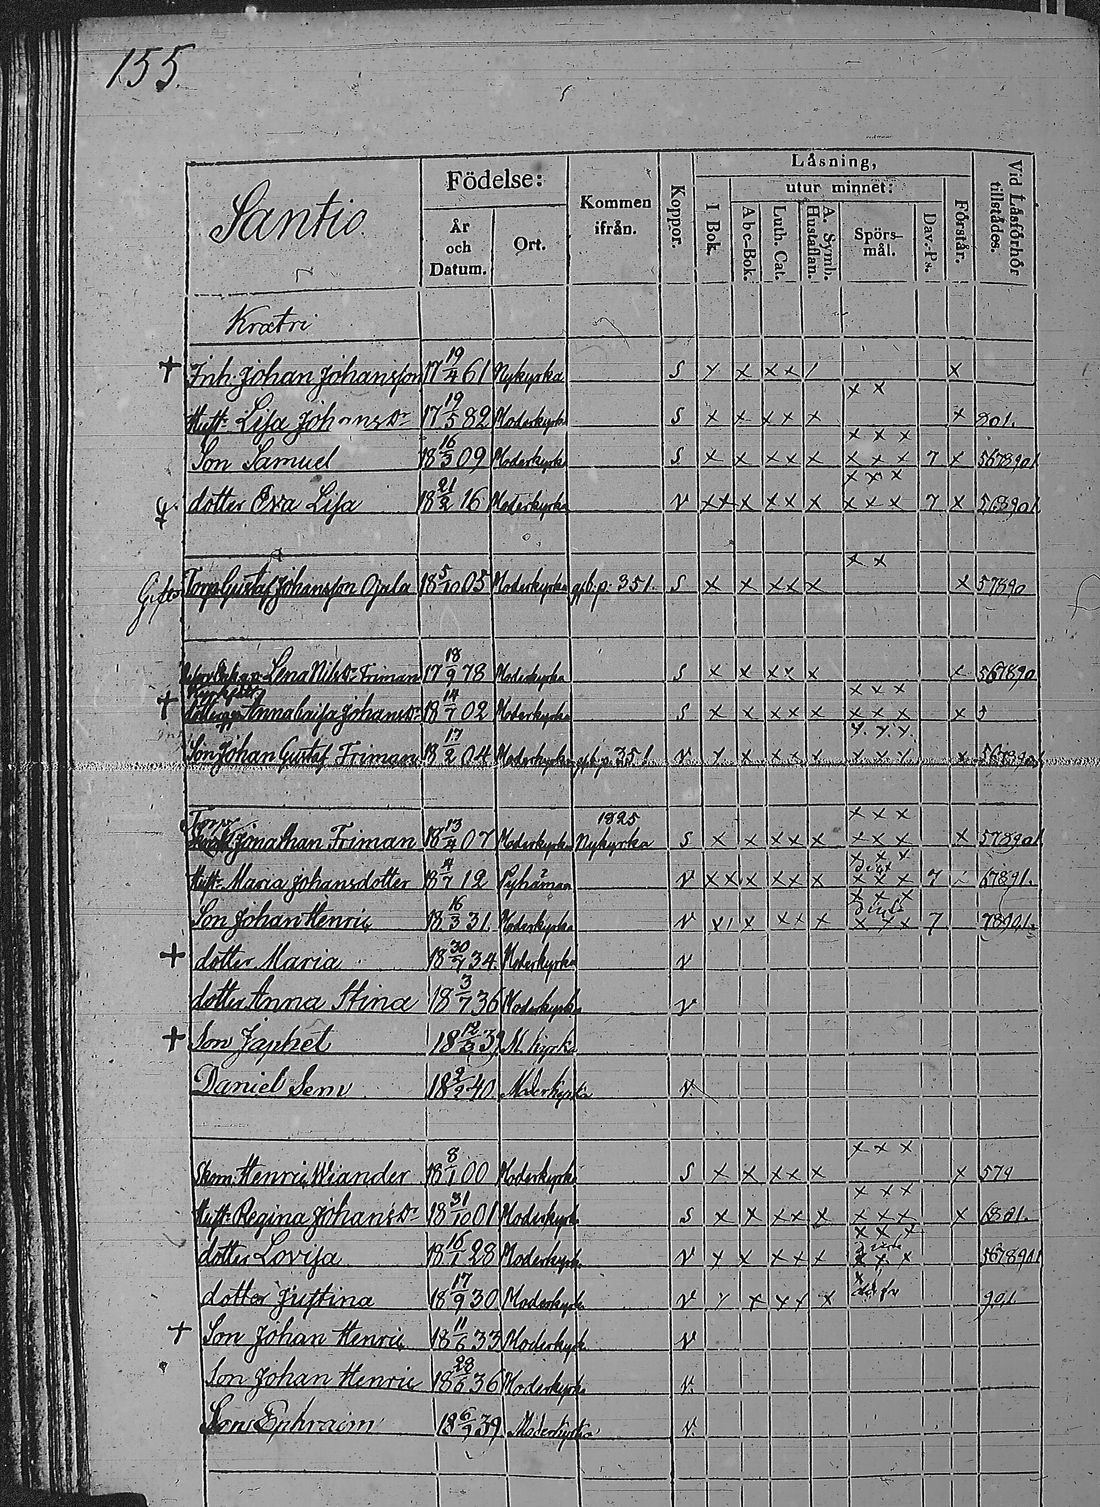 155.
Santio.
Födelse:
År och Datum.
Ort.
Kommen ifrån.
Koppor.
Läsning,
I Bok.
utur minnet:
Abc-Bok.
Luth. Cat.
A. Symb. Hustaflan.
Spörs-mål.
Dav.-Ps.
Förstår.
Vid Läsförhör tillstädes.
Krätri
+ Inh. Johan Johansson 17 19/4 61 Nykyrka S x x x x / x
x x
Hust. Lisa Johansdr 17 19/5 82 Moderkyrka S x x x x x x 801.
x x x
Son Samuel 18 16/3 09 Moderkyrka S x x x x x x x x 7 x 5678901
x x x
dotter Eva Lisa 18 21/2 16 Moderkyrka V x x x x x x x x x 7 x 568901
x x
Gift Torp. Gustaf Johansson Ojala 18 5/10 05 Moderkyrka gßb. p. 351. S x x x x x x 57890
Lena Nilsdr Friman 17 18/9 78 Moderkyrka S x x x x x x 567890
x x x
+ dotter Anna Caisa Johansdr 18 14/7 02 Moderkyrka S x x x x x x x x x 5
x x x
Son Johan Gustaf Friman 18 17/2 04 Moderkyrka p. 351. V x x x x x x x x x
x x x
1825
Torp Jonathan Friman 18 13/4 07 Moderkyrka Nykyrka S x x x x x x x x x 578901
x x x
Hust. Maria Johansdotter 18 4/7 12 Pyhämaa V x x x x x x x x x 7 67891.
x x x
Son Johan Henric 18 16/3 31. Moderkyrka V x 1 x x x x x x x 7 78901.
+ dotter Maria 18 30/7 34. Moderkyrka V
dotter Anna Stina 18 3/7 36 Moderkyrka V
+ Son Japhet 18 12/3 39 M. kyrk.
Daniel Sem 18 2/2 40. Moderkyrka V.
x x x
Skom. Henric Wiander 18 8/1 00 Moderkyrka S x x x x x x 579
x x x
Hust. Regina Johansdr 18 31/10 01 Moderkyrk S x x x x x x x x x 6801.
x x x
dotter Lovisa 18 16/1 28 Moderkyrk V x x x x x x x x 5678901
dotter Justina 18 17/9 30 Moderkyrk V x x x x x 901
+ Son Johan Henric 18 11/6 33 Moderkyrk V
Son Johan Henric 18 28/6 36 Moderkyrka V.
Son Ephraim 18 6/9 39 Moderkyrka V.